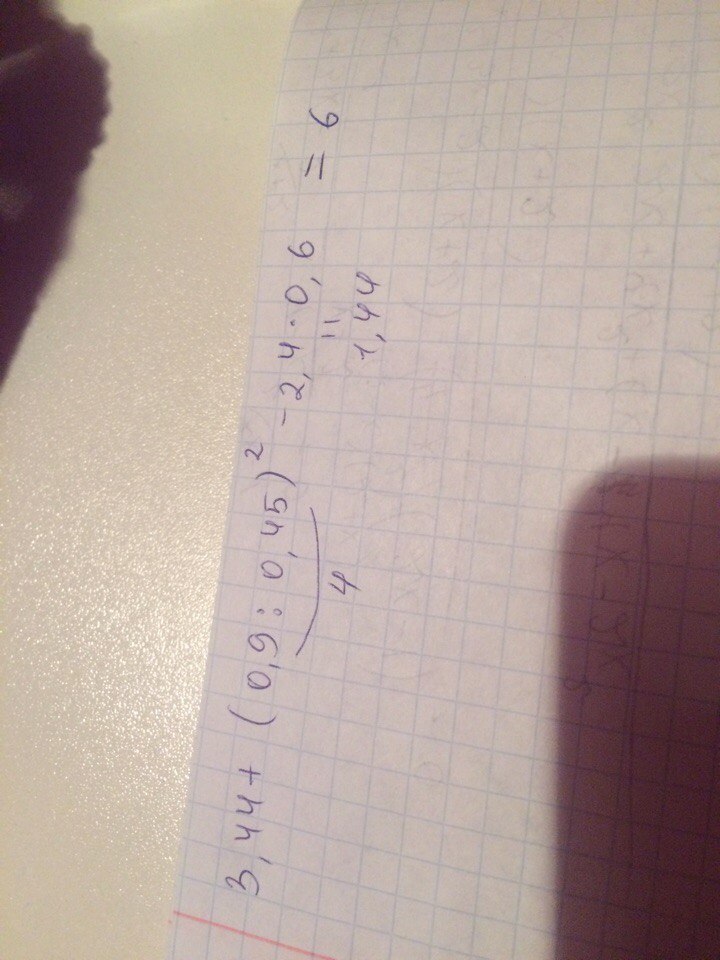 3,44+ (0,9:0,45)² -2,4·0,6 = 6
4
=
1,44